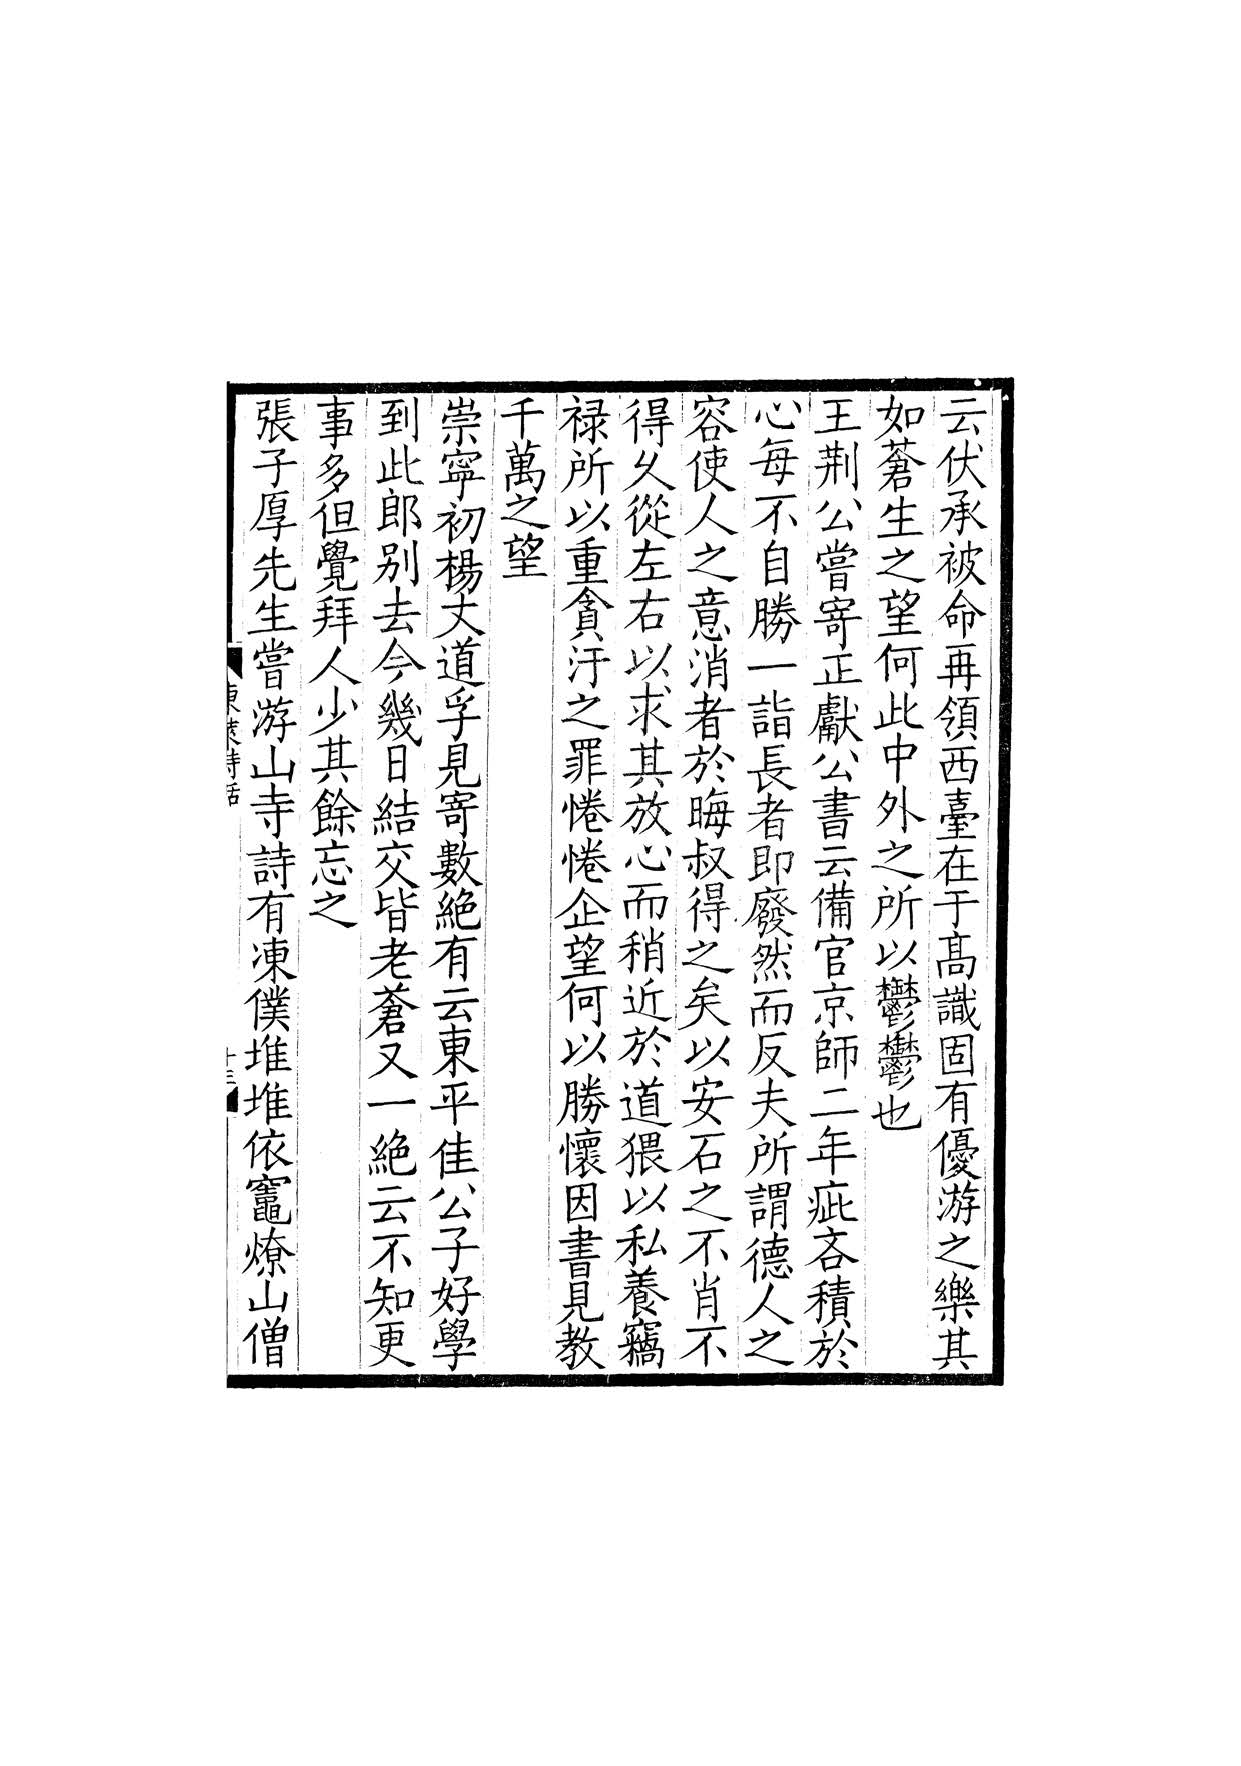 云伏承被命再領西臺在于髙識固有優游之樂其
如蒼生之望何此中外之所以鬱鬱也
王荆公嘗寄正獻公書云備官京師二年疵吝積於
心每不自勝一詣長者即廢然而反夫所謂德人之
容使人之意消者於晦叔得之矣以安石之不肖不
得久從左右以求其放心而稍近於道猥以私養竊
禄所以重貪汙之罪惓惓企望何以勝懷因書見教
千萬之望
崇寧初楊丈道孚見寄數絶有云東平佳公子好學
到此郎别去今幾日結交皆老蒼又一絶云不知更
事多但覺拜人少其餘忘之
張子厚先生嘗游山寺詩有凍僕堆堆依竈燎山僧
東萊詩話
十三